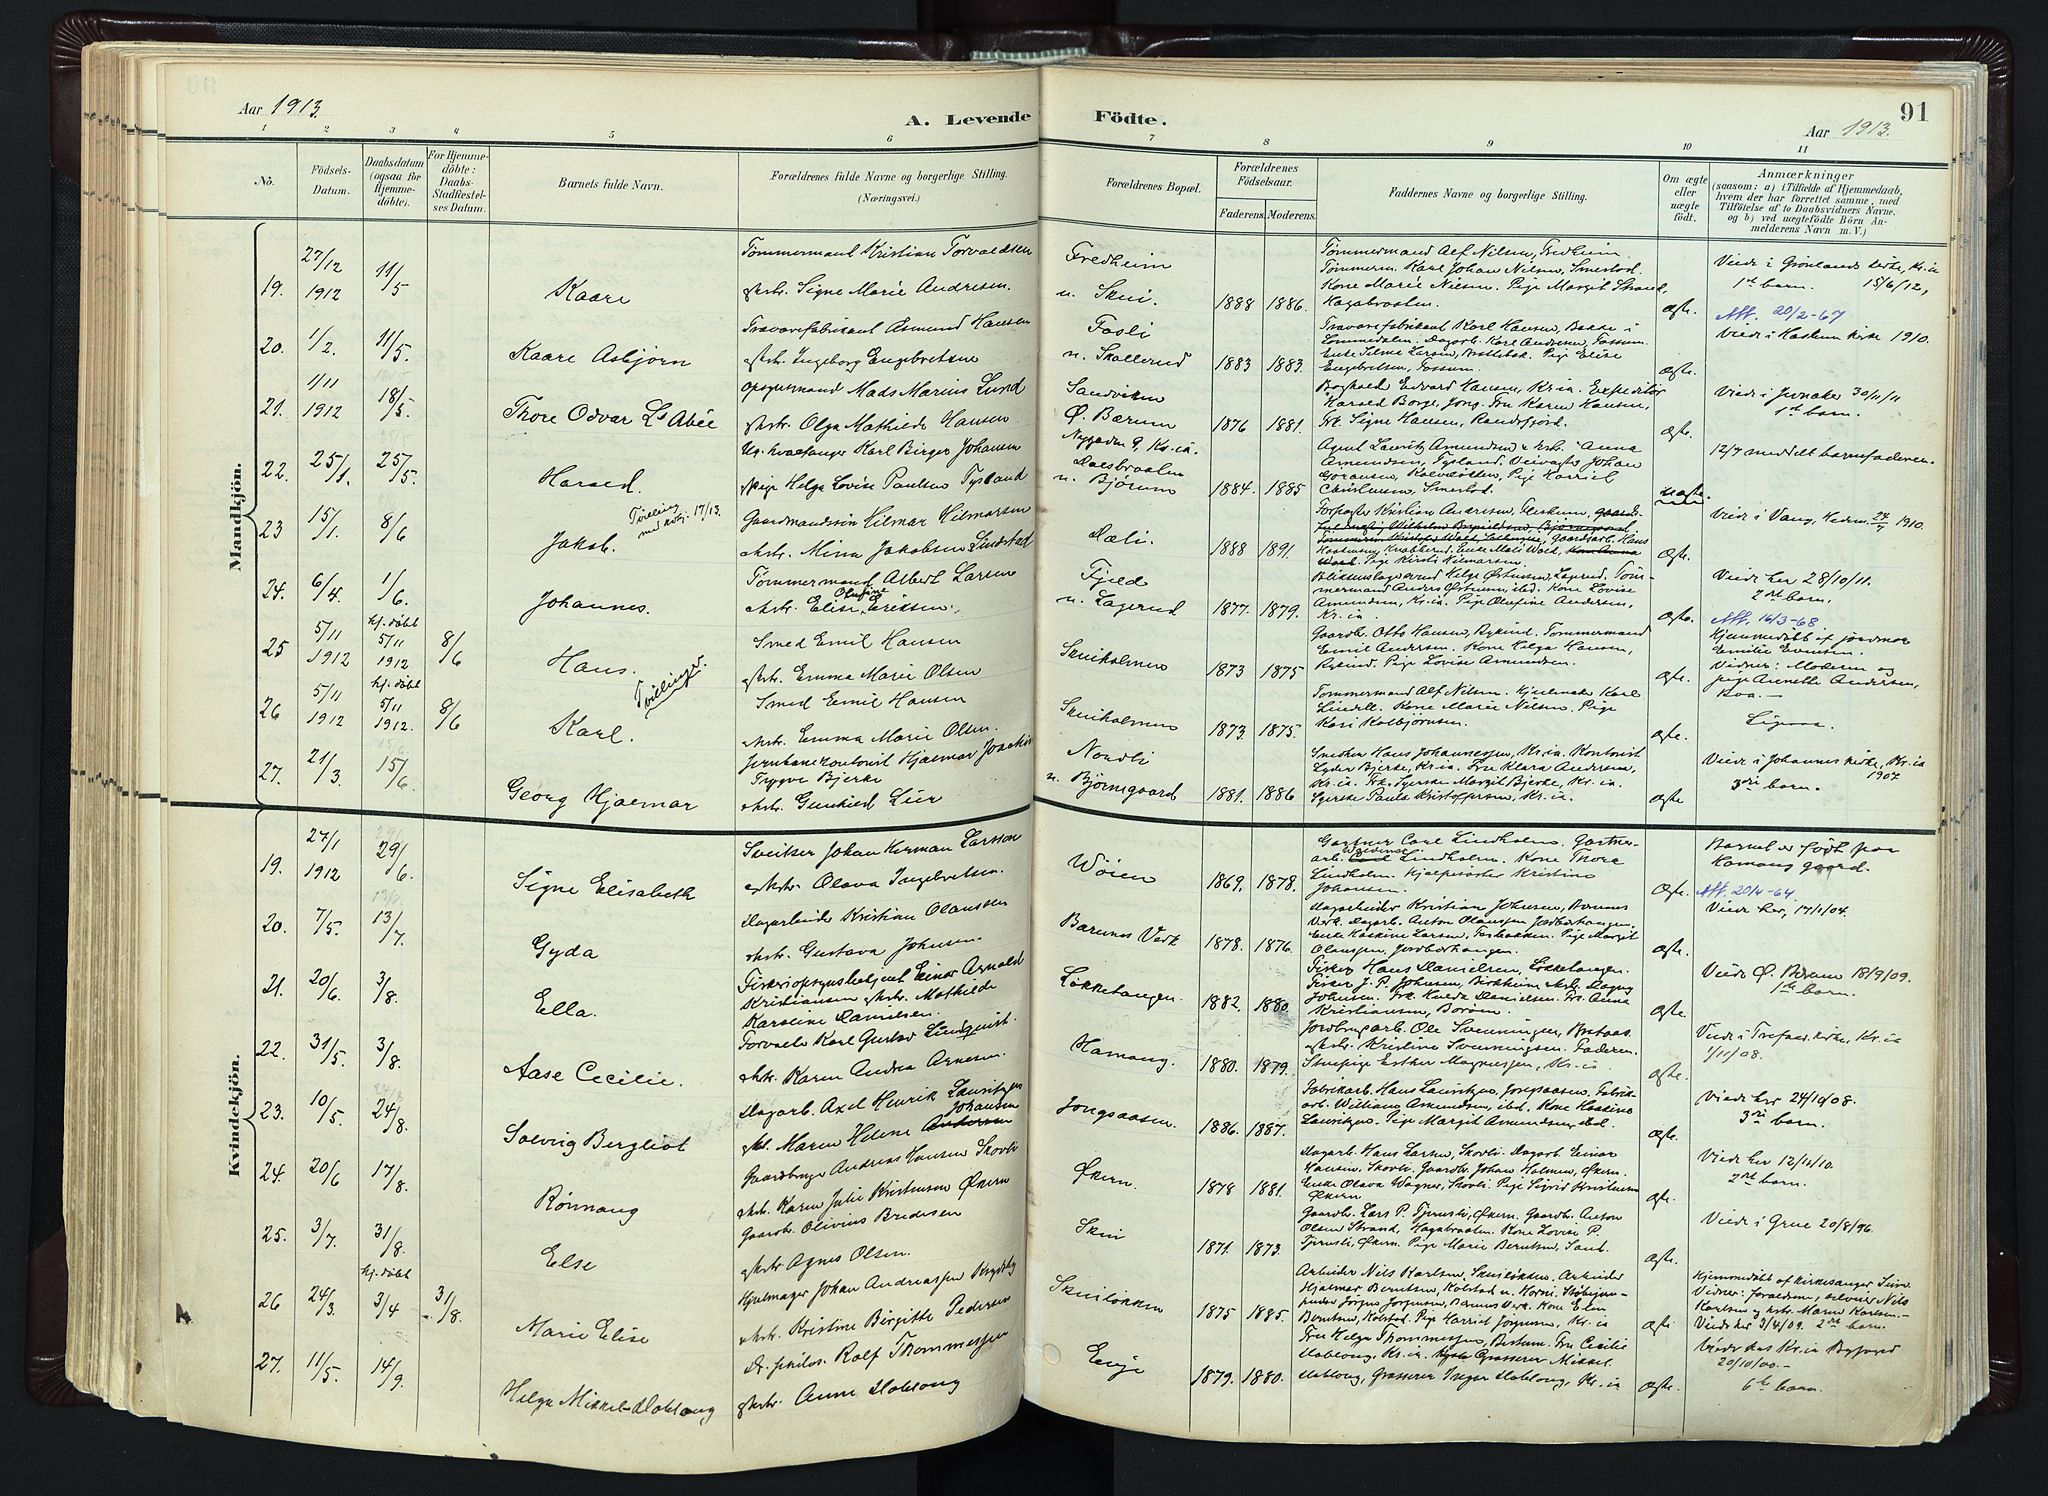 Aar 1913.
A. Levende Födte.
91
Aar 1913.
1 2 3 4 5 6 7 8 9 10 11
No.
Födsels-
Datum.
Daabsdatum
(ogsaa for
Hjemme-
döbte).
For Hjemme-
döbte:
Daabs-
Stadfæstel-
ses Datum.
Barnets fulde Navn.
Forældrenes fulde Navne og borgerlige Stilling.
(Næringsvei.)
Forældrenes Bopæl.
Forældrenes
Födselsaar.
Faderens. Moderens.
Faddernes Navne og borgerlige Stilling.
Om ægte
eller
uægte
födt.
Anmærkninger
(saasom: a) i Tilfælde af Hjemmedaab,
hvem der har forrettet samme, med
Tilföielse af to Daabsvidners Navne,
og b) ved uægtefödte Börn An-
melderens Navn m. V.)
Mandkjön.
19. 27/12 1912 11/5 Kaare
Tømmermand Kristian Torvaldsen
Hstr. Signe Marie Andresen.
Fredheim
u. Skui. 1888 1886.
Tømmermand Alf Nilsen, Fredheim.
Tømmerm. Karl Johan Nilsen, Smestad.
Kone Marie Nilsen. Pige Margit Strand,
Hagabraaten.
Ægte.
Viede i Grønlands kirke, Kr.ia
1ste barn. 15/6/12,
Att. 20/2-67
20. 1/2. 11/5. Kaare Asbjørn
Travarefabrikant Asmund Hansen
Hstr. Ingeborg Engebretsen
Fosli
u. Skollerud 1883 1883.
Travarefabrikant Karl Hansen, Bakke i
Lommedalen. Dagarb. Karl Andersen, Fossum.
Enke Silma Larsen, Pige Elise
Engebretsen, Fossum.
Ægte.
Viede i Haslum kirke 1910.
21. 1/11 1912 18/5. Thore Odvar L'Abée
Opsynsmand Mads Marius Lund
Hstr. Olga Mathilde Hansen
Sandviken
Ø. Bærum 1876 1881.
Bogholder Edvard Hansen, Kr.ia. Expeditør
Harald Borge, Jong. Fru Karen Hansen,
Frk. Signe Hansen, Randsfjord.
Ægte.
Viede i Jevnaker 30/11/11
1ste barn.
22. 25/1. 25/5. Harald.
Ug. hvalfanger Karl Birger Johansen
Pige Helga Lovise Paulsen Tysland
Nygaden 9, Kr.ia.
Dalsbraaten
u. Bjørum 1884. 1885
Agent Lauritz Amundsen & hstr. Anna
Amundsen, Tysland. Veivogter Johan
Goransen, Kalvedalten, Pige Harriet
Christensen, Smestad.
uægte.
12/7 meddelt barnefaderen.
23 15/1. 8/6 Jakob.
Tvilling
med kvkj. 17/13.
Gaardmandssøn Hilmar Hilmarsen
Hstr. Mina Jakobsen Lindstad
Dæli. 1888 1891.
Ægte.
Viede i Vang, Hedm. 24/7 1910.
24. 6/4. 1/6. Johannes.
Tømmermand Albert Larsen
Hstr. Elise Olufine Eriksen.
Fjeld
u. Lagerud 1877. 1879.
Blikkenslagersvend Helge Østensen, Lagerud. Tøm-
mermand Anders Østensen, ibd. Kone Lovise
Amundsen, Kr.ia. Pige Olufine Andersen,
Kr.ia.
Ægte.
Viede her 28/10/11.
2det barn.
Att. 16/3-68.
25 5/11 1912 hj. døbt 5/11 1912 8/6 Hans.
Tvillinger.
Smed Emil Hansen
Hstr. Emma Marie Olsen
Skuiholmen 1873 1875
Gaardb. Otto Hansen, Rykind. Tømmermand
Emil Andersen. Kone Helga Hansen,
Rykind. Pige Lovise Amundsen.
Ægte.
Hjemmedøbt af jordmor
Emilie Evensen.
Vidner: Moderen og
pige Annette Andersen,
26 5/11 1912 hj. døbt 5/11 1912. 8/6 Karl.
Smed Emil Hansen
Hstr. Emma Marie Olsen.
Skuiholmen 1873. 1875.
Tømmermand Alf Nilsen. Hjulmaker Karl
Lindell. Kone Marie Nilsen. Pige
Kari Kolbjørnsen.
Ægte.
Ligesaa.
27. 21/3 15/6. Georg Hjalmar
Jernbanekontorist Hjalmar Joachim
Trygve Bjerke
Hstr. Gunhild Lier
Nordli
u. Bjørnegaard 1881. 1886
Snedker Hans Johannessen, Kr.ia. Kontorist
Lyder Bjerke, Kr.ia. Fru Klara Andersen,
Kr.ia. Frk. Syerske Margit Bjerke, Kr.ia.
Syerske Paula Kristoffersen, Kr.ia.
Ægte
Viede i Johannes kirke, Kr.ia
1907.
3die barn.
Kvindekjön.
19. 27/1 1912 29/6. Signe Elisabeth
Sveitser Johan Herman Larsson
Hstr. Olava Ingebretsen.
Wøien 1869. 1878.
Gartner Carl Lindholm. Gartner-
arb. Lindholm. Kone Thora
Lindholm. Hjælperöster Kristine
Johansen.
Ægte.
Barnet er født paa
Hamang gaard.
Att. 20/4-64.
20. 7/5. 13/7. Gyda
Dagarbeider Kristian Olaussen
Hstr. Gustava Johnsen.
Bærums Verk 1878. 1876.
Dagarbeider Kristian Johnsen, Bærums
Verk. Dagarb. Anton Olaussen Jordbærhaugen.
Enke Haakine Larsen, Fosbakken. Pige Margit
Olaussen, Jordbærhaugen.
Ægte.
Viede her, 17/1/04.
21. 20/6. 3/8. Ella.
Fiskeriopsynsbetjent Einar Arnold
Kristiansen & Hstr. Mathilde
Karoline Danielsen.
Løkkehaugen. 1882. 1880.
Fisker Hans Danielsen, Løkkehaugen.
Fisker J. P. Johnsen, Birkheim & hstr. Dagny
Johnsen. Frk. Hulda Danielsen. Fr. Anna
Kristiansen, Borøen.
Ægte.
Viede Ø. Bærum 18/9/09.
1ste barn.
22. 31/5. 3/8. Aase Cecilie.
Torvald Karl Gustav Lundquist.
Hstr. Karen Andrea Arnesen.
Hamang. 1880. 1879.
Jordbrugarb. Ole Svenningsen, Rostaas
& Hstr. Kristine Svenningsen. Faderen.
Stuepige Esther Magnussen, Kr.ia.
Ægte.
Viede i Trefoldh. kirke, Kr.ia
1/11/08.
23. 10/5. 24/8. Solveig Bergliot
Dagarb. Axel Henrik Lauritzen
Hst. Maren Helene Andersen Johansen
Jongsaasen. 1886. 1887.
Fabrikarb. Hans Lauritzen, Jongsaasen. Fabrik-
arb. William Amundsen, ibd. Kone Haakine
Lauritzen. Pige Margit Amundsen, ibd.
Ægte.
Viede her 24/10/08.
3die barn.
24. 20/6 17/8. Rønnaug
Gaardbruger Andreas Hansen Skovli
Hstr. Karen Julie Kristensen Økern
Økern. 1878 1881.
Dagarb. Hans Larsen, Skovli. Dagarb. Einar
Hansen, Skovli. Gaardb. Johan Holmen, Økern.
Enke Olava Wagner, Skovli. Pige Sigrid Kristensen
Økern
Ægte.
Viede her 12/11/10.
2det barn.
25. 3/7. 31/8. Else
Gaardbr. Olivius Bredesen
Hstr. Agnes Olsen.
Skui 1871. 1873.
Gaardb. Lars P. Tjernsli, Økern. Gaardb. Anton
Olsen Strand, Hagabraaten. Kone Lovise P.
Tjernsli, Økern. Pige Marie Berntsen, Sand.
Ægte.
Viede i Grue 20/8/96.
26 24/3. hj. døbt 3/4 31/8. Marie Elise
Hjulmager Johan Andreassen Krydsby
Hstr. Kristine Birgitte Pedersen
Skuiløkken 1875 1885.
Arbeider Nils Karlsen, Skuiløkken. Arbeider
Hjalmar Berntsen, Kolstad u. Horni.
Jörgen Jörgensen, Bærums Verk. Kone Elen
Berntsen, Kolstad. Pige Harriet Jörgensen, Kr.ia
Ægte
Hjemmedøbt af kirkesanger
Vidner: forældrene, selveier Nils
Karlsen og hstr. Maren Karlsen.
Viede her 3/4/09. 2det barn.
27. 11/5. 14/9. Helga Mikkel Doblong
Dr. philos. Rolf Thommessen
Hstr. Anne Doblong
Enge 1879. 1880.
Fru Helga Thommessen, Bestum. Fru Cecilie
Doblong, Kr.ia. Grosserer Mikkel
Doblong, Grosserer Inger Doblong, Kr.ia
Ægte.
Viede hos Kr.ia Byfoged
20/10/00.-
6te barn.